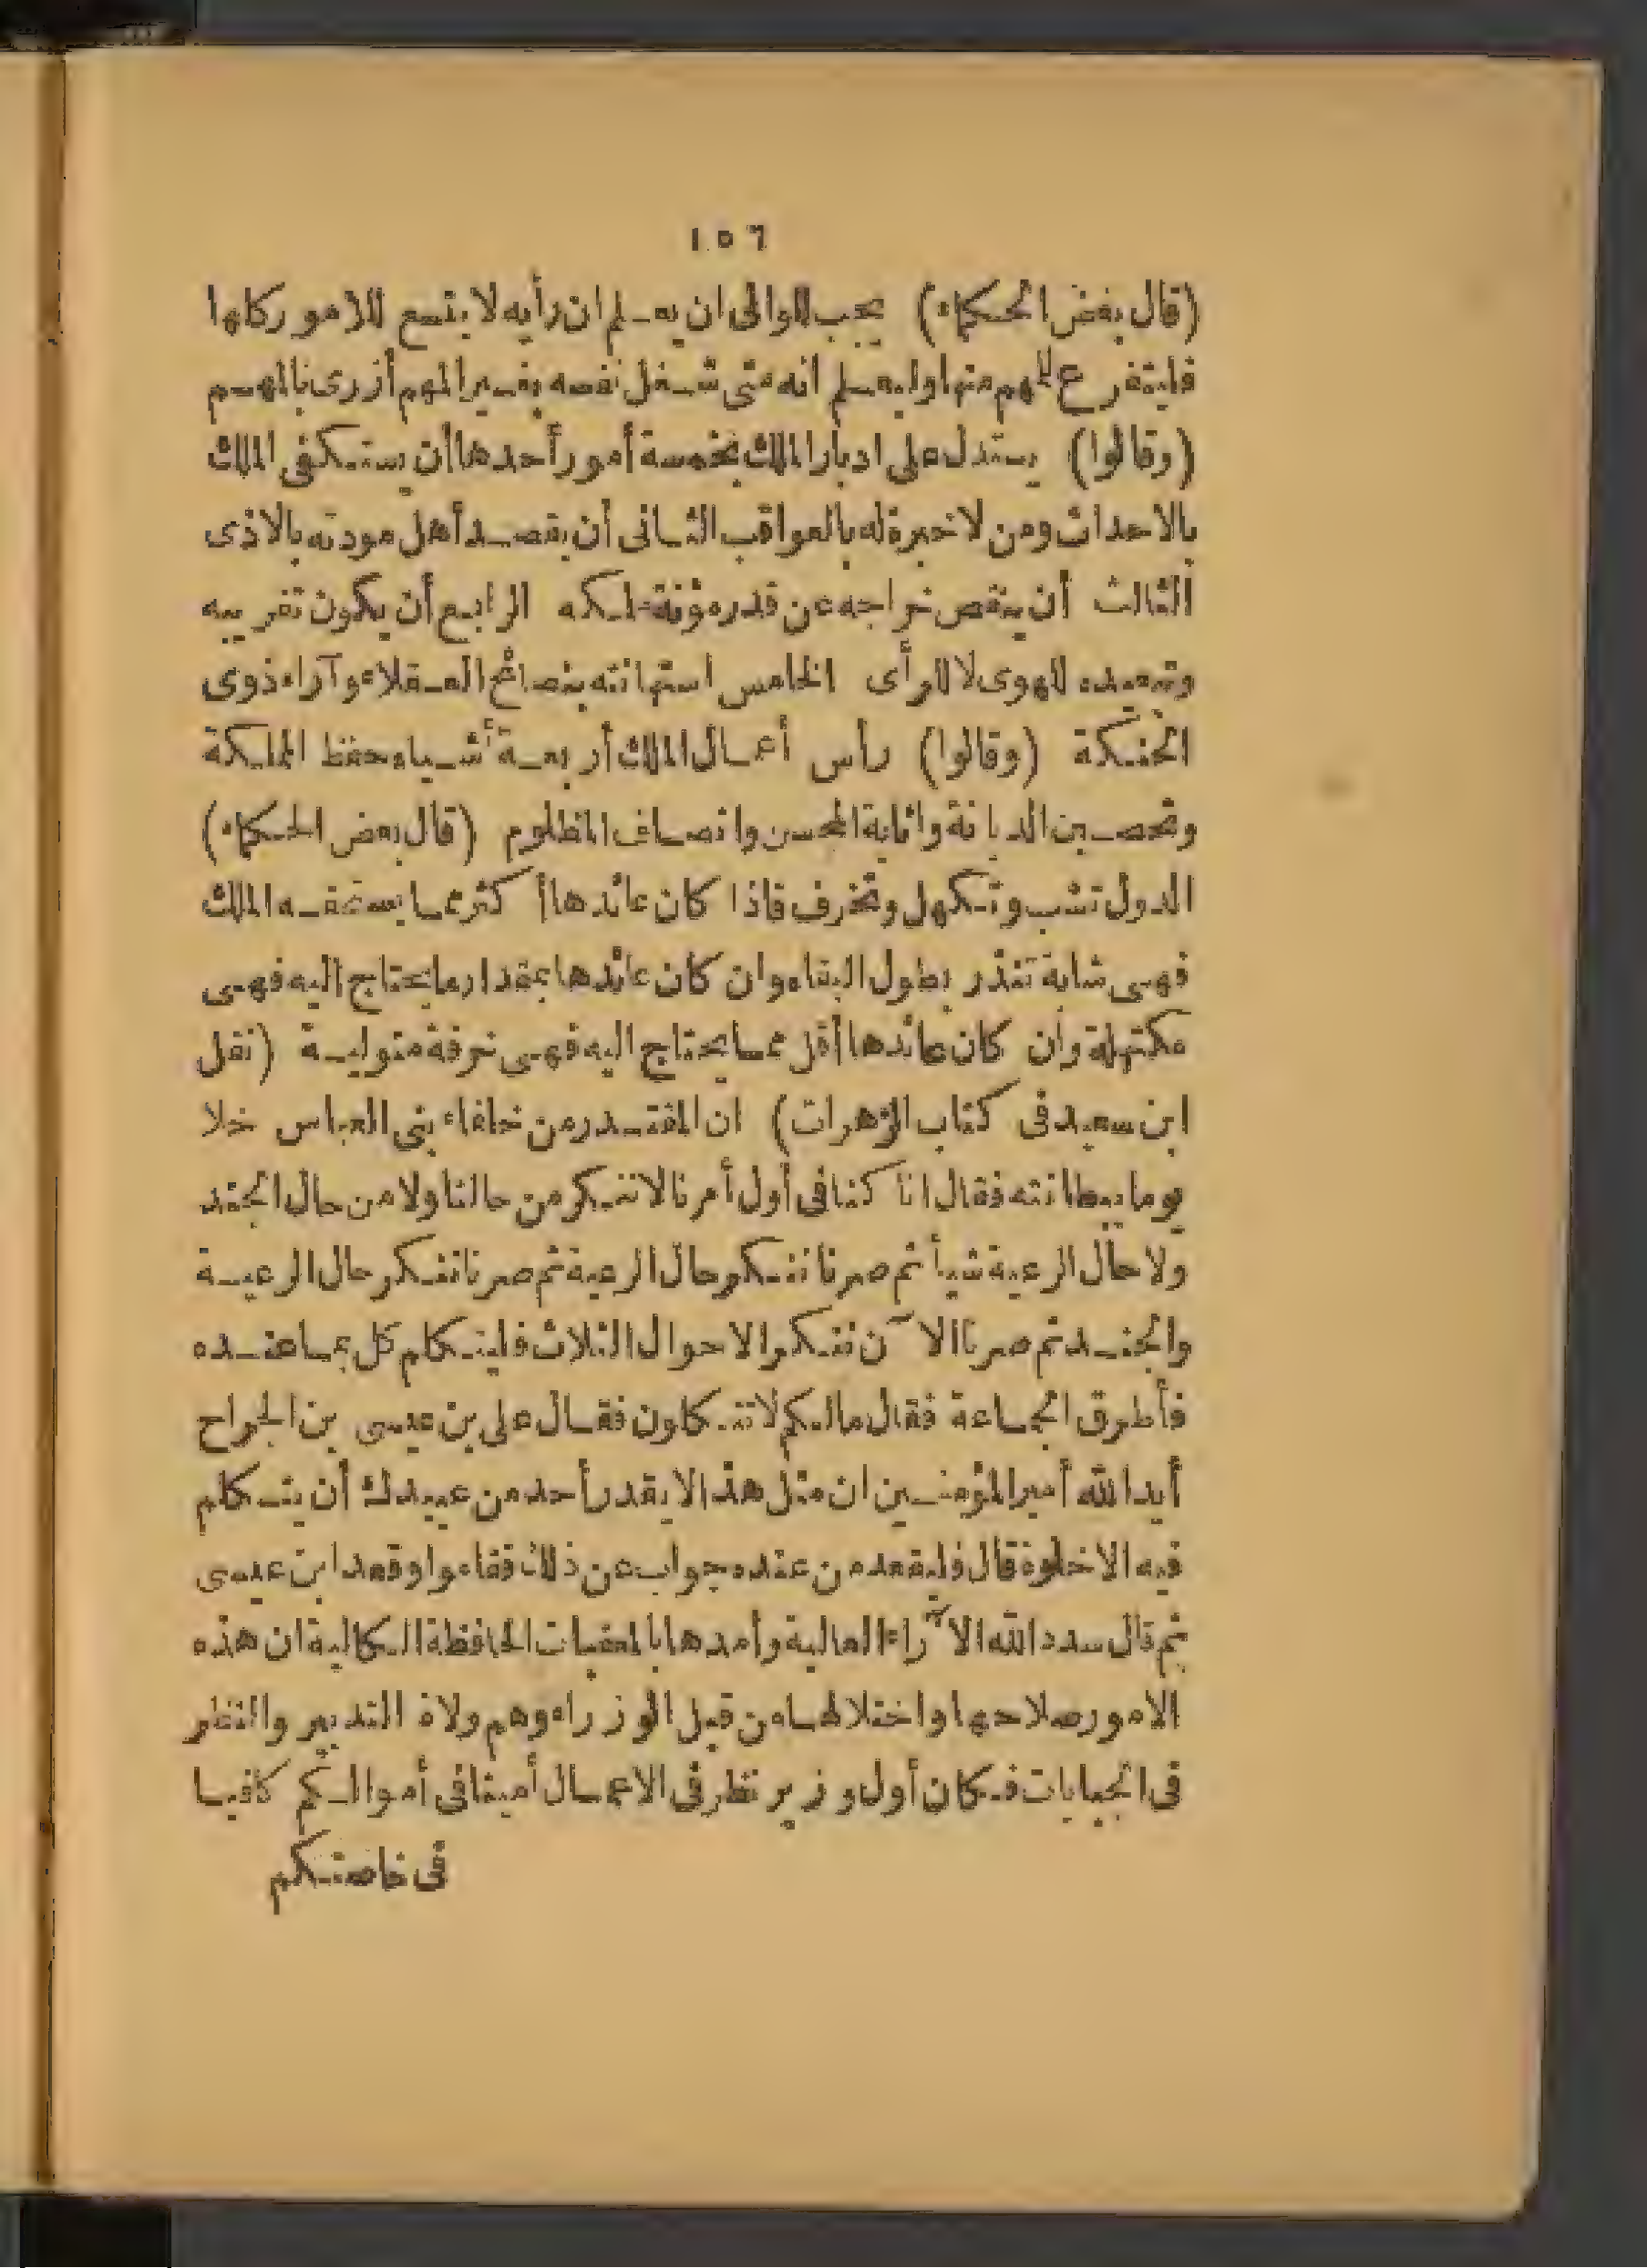 ١٥٦
(قال بعض الحكماء) يجب للوالى ان يعلم ان رأيه لا يتسع للامور كلها
فليتفرغ للهم منها وليعلم انه متى شغل نفسه بغير المهم أزرى بالمهم
(وقالوا) يستدل على ادبار الملك بخمسة أمور أحدها أن يستكفى الملك
بالاحداث ومن لا خبرة له بالعواقب الثانى أن يقصد أهل مودته بالاذى
الثالث أن ينقص خراجه عن قدر مؤنة ملكه الرابع أن يكون تقريبه
وتبعيده للهوى لا للرأى الخامس استهانته بنصائح العقلاء وآراء ذوى
الحنكة (وقالوا) رأس أعمال الملك أربعة أشياء حفظ المملكة
وتحصين الديانة واثابة المحسن وانصاف المظلوم (قال بعض الحكماء)
الدول تشب وتكهل وتخرف فاذا كان عائدها أكثر مما يستحقه الملك
فهى شابة تنذر بطول البقاء وان كان عائدها بمقدار ما يحتاج اليه فهى
مكتهلة وان كان عائدها أقل مما يحتاج اليه فهى خرفة متولية (نقل
ابن سعيد فى كتاب الزهرات) ان المقتدر من خلفاء بنى العباس خلا
يوما ببطانته فقال انا كنا فى أول أمرنا لا ننكر من حالنا ولا من حال الجند
ولا حال الرعية شيأ ثم صرنا ننكر حال الرعية ثم صرنا ننكر حال الرعية
والجند ثم صرنا الآن ننكر الاحوال الثلاث فليتكلم كل بما عنده
فأطرق الجماعة فقال ما لكم لا تتكلمون فقال على بن عيسى بن الجراح
أيد الله أمير المؤمنين ان مثل هذا لا يقدر أحد من عبيدك أن يتكلم
فيه الا خلوة قال فليقعد من عنده جواب عن ذلك فقاموا وقعد ابن عيسى
ثم قال سدد الله الآراء العالية وأمدها بالمعقبات الحافظة الكالية ان هذه
الامور صلاحها واختلالها من قبل الوزراء وهم ولاة التدبير والنظر
فى الجبايات فكان أول وزير نظر فى الاعمال أمينا فى أموالكم كافيا
فى خاصتكم